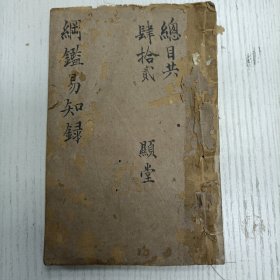 總目共
肆拾貳
顯堂
綱鑑易知録